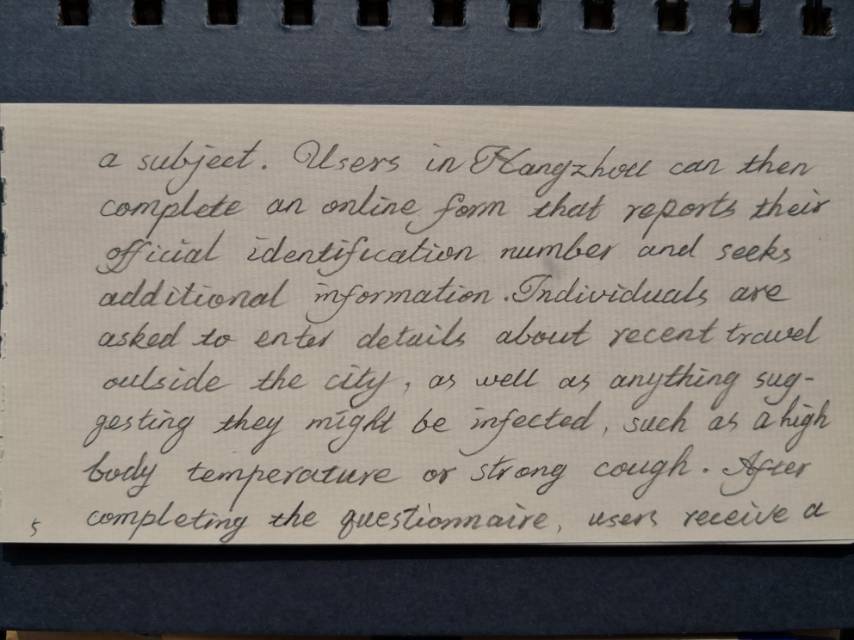 a subject. Users in Hangzhou can then
complete an online form that reports their
official identification number and seeks
additional information. Individuals are
asked to enter details about recent travel
outside the city, as well as anything sug-
gesting they might be infected, such as a high
body temperature or strong cough. After
completing the questionnaire, users receive a
5